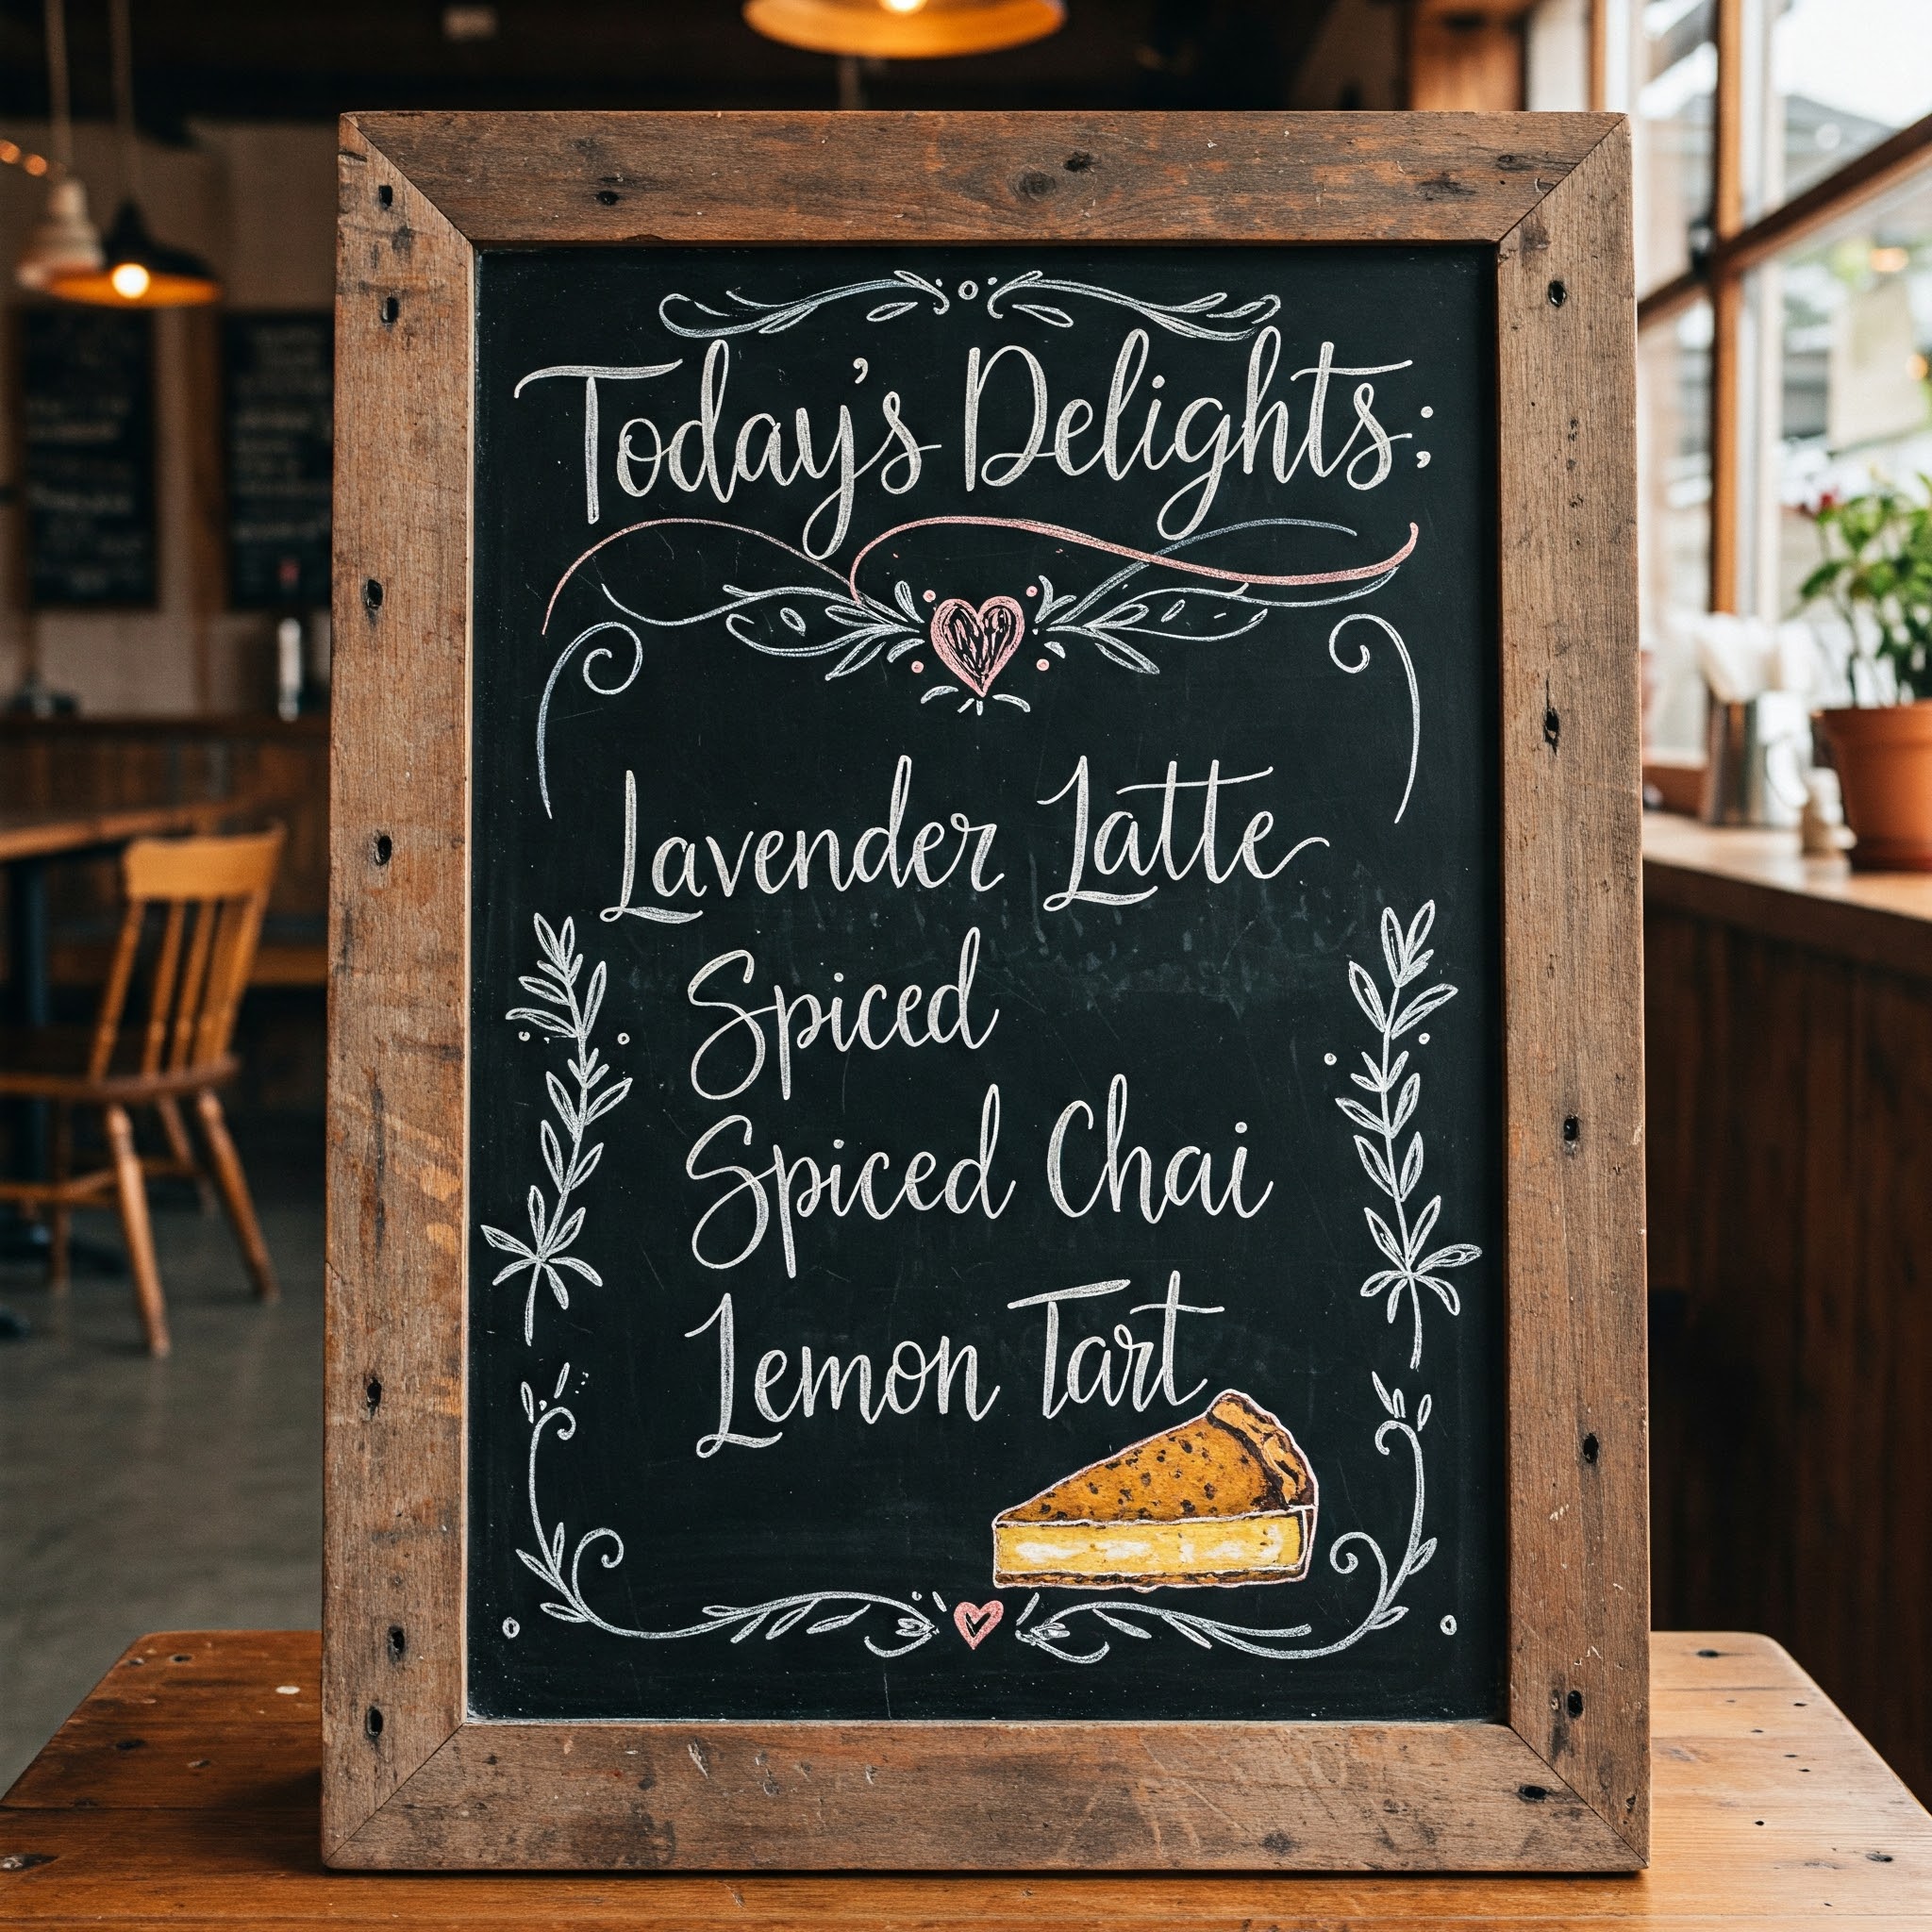 Today's Delights:
Lavender Latte
Spiced
Spiced Chai
Lemon Tart